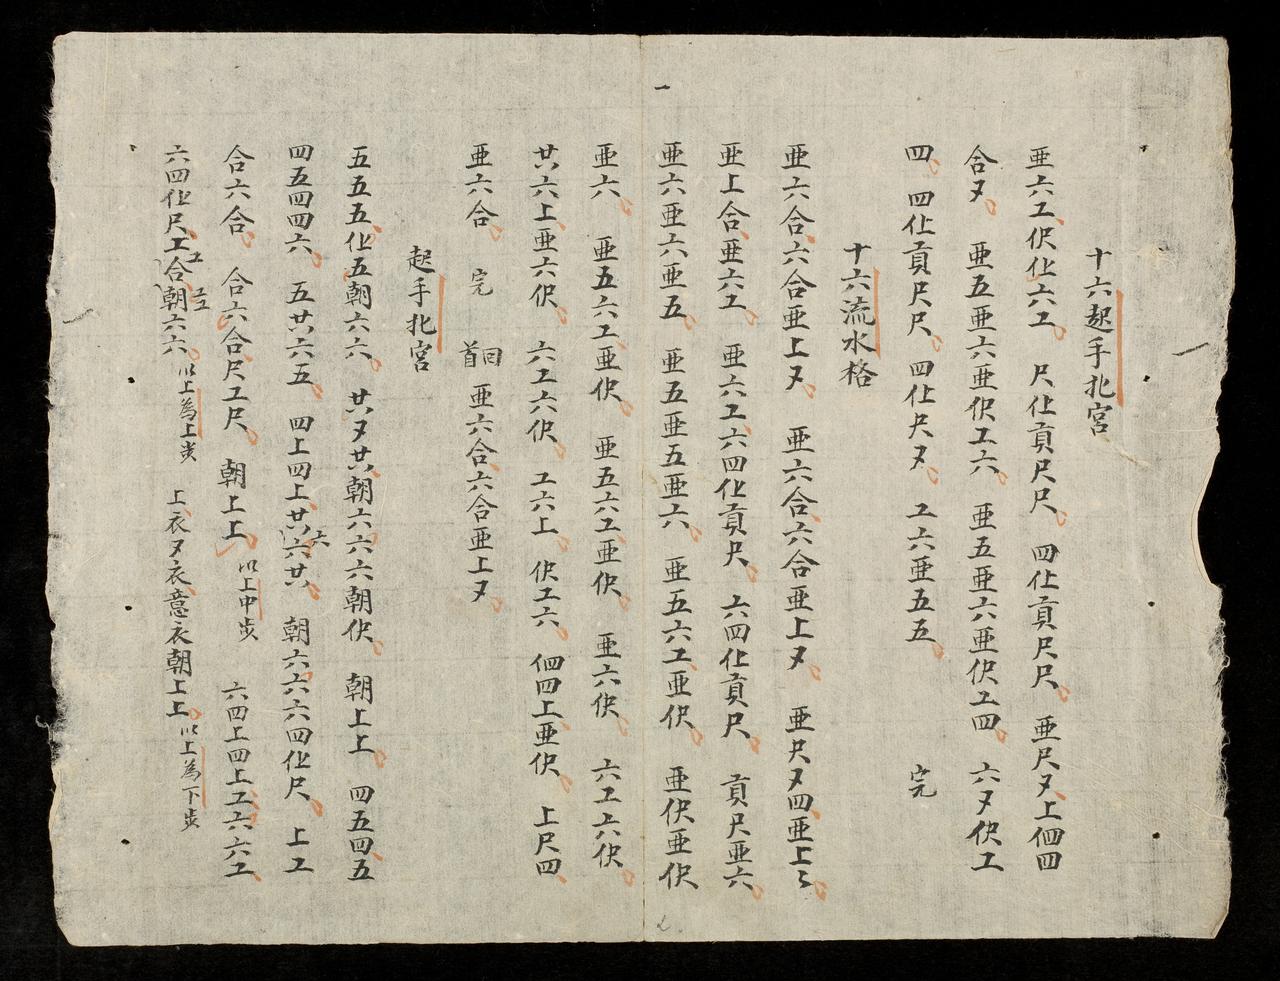 十六起手北宮
亜六工伬仩六工 尺仩貢尺尺 四仩貢尺尺 亜尺ヌ上伵四
合ヌ 亜五亜六亜伬工六 亜五亜六亜伬工四 六ヌ伬工
四 四仩貢尺尺 四仩尺ヌ 工六亜五五 完
十六流水格
亜六合六合亜上ヌ 亜六合六合亜上ヌ 亜尺ヌ四亜上
亜上合亜六工 亜六工六四仩貢尺 六四仩貢尺 貢尺亜六
亜六亜六亜五 亜五亜五亜六 亜五六工亜伬 亜伬亜伬
亜六 亜五六工亜伬 亜五六工亜伬 亜六伬 六工六伬
廿六上亜六伬 六工六伬 工六上 伬工六 伵四上亜伬 上尺四
亜六合 完 回首 亜六合六合亜上ヌ
起手北宮
五五五仩五朝六六 廿ヌ廿朝六六六朝伬 朝上上 四五四五
四五四四六 五廿六五 四上四上廿六六廿 朝六六六四仩尺 上工
合六合 合六合尺工尺 朝上上 以上中步 六四上四上工六六工
六四仩尺工合工朝六六 以上為上步 上衣ヌ衣意衣朝上上 以上為下步